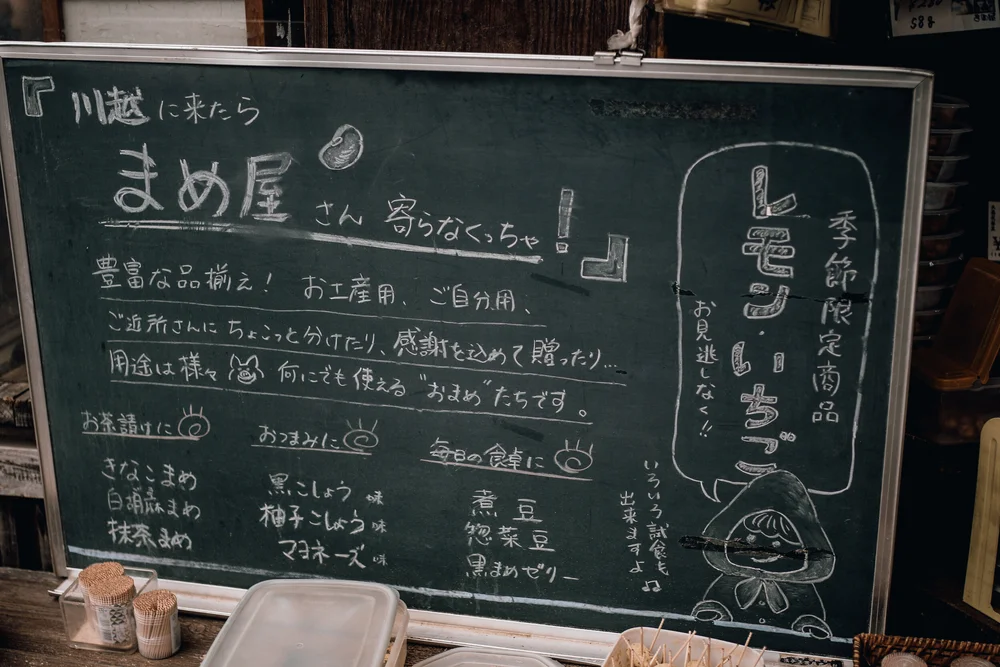 『川越に来たら
まめ屋さん 寄らなくっちゃ!』
豊富な品揃え! お土産用、ご自分用、
ご近所さんにちょこっと分けたり、感謝を込めて贈ったり…
用途は様々 何にでも使える"おまめ"たちです。
お茶請けに
きなこまめ
白胡麻まめ
抹茶まめ
おつまみに
黒こしょう味
柚子こしょう味
マヨネーズ味
毎日の食卓に
煮豆
惣菜豆
黒まめゼリー
季節限定商品
レモン・いちご
お見逃しなく!!
いろいろ試食も
出来ますよ♫